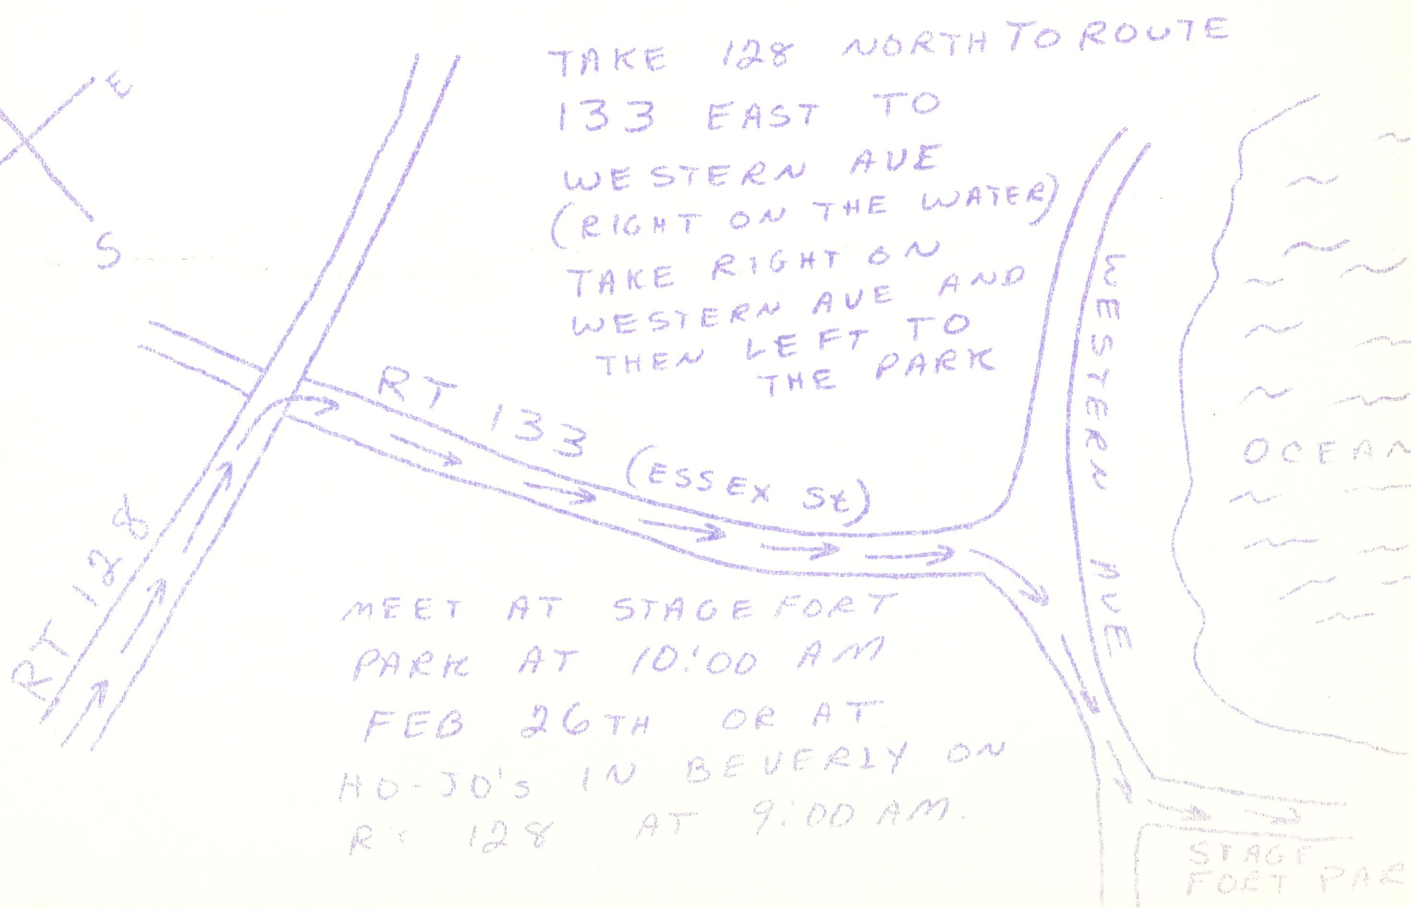 TAKE 128 NORTH TO ROUTE
133 EAST TO
WESTERN AVE
(RIGHT ON THE WATER)
TAKE RIGHT ON
WESTERN AVE AND
THEN LEFT TO
THE PARK
E
S
WESTERN AVE
RT 133 (ESSEX St)
OCEAN
RT 128
MEET AT STAGE FORT
PARK AT 10:00 AM
FEB 26TH OR AT
HO-JO'S IN BEVERLY ON
RT 128 AT 9:00 AM.
STAGE
FORT PAR